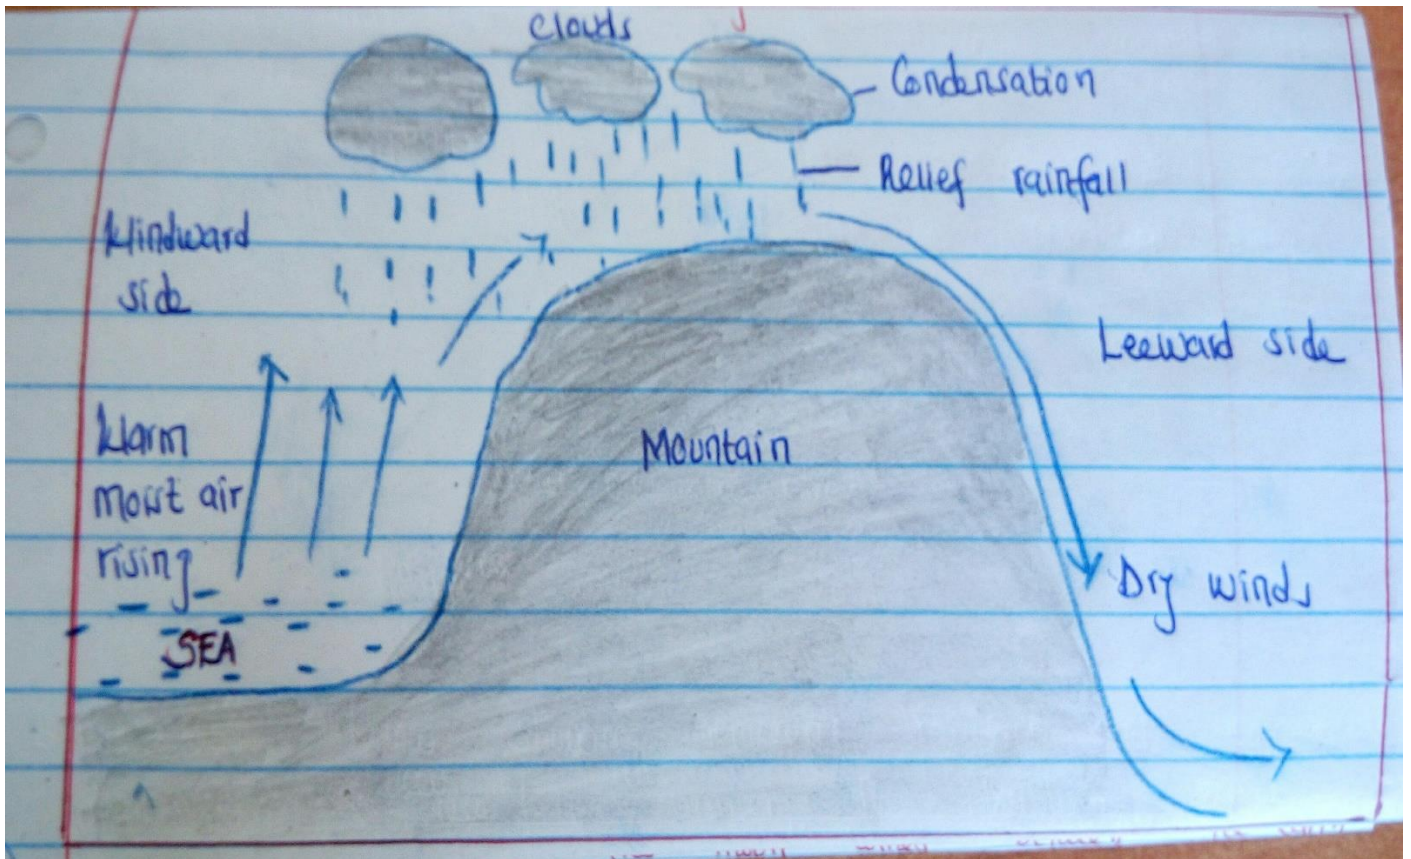 Clouds
Condensation
Relief rainfall
Windward
side
Leeward side
Warm
Moist air
rising
Mountain
Dry winds
SEA